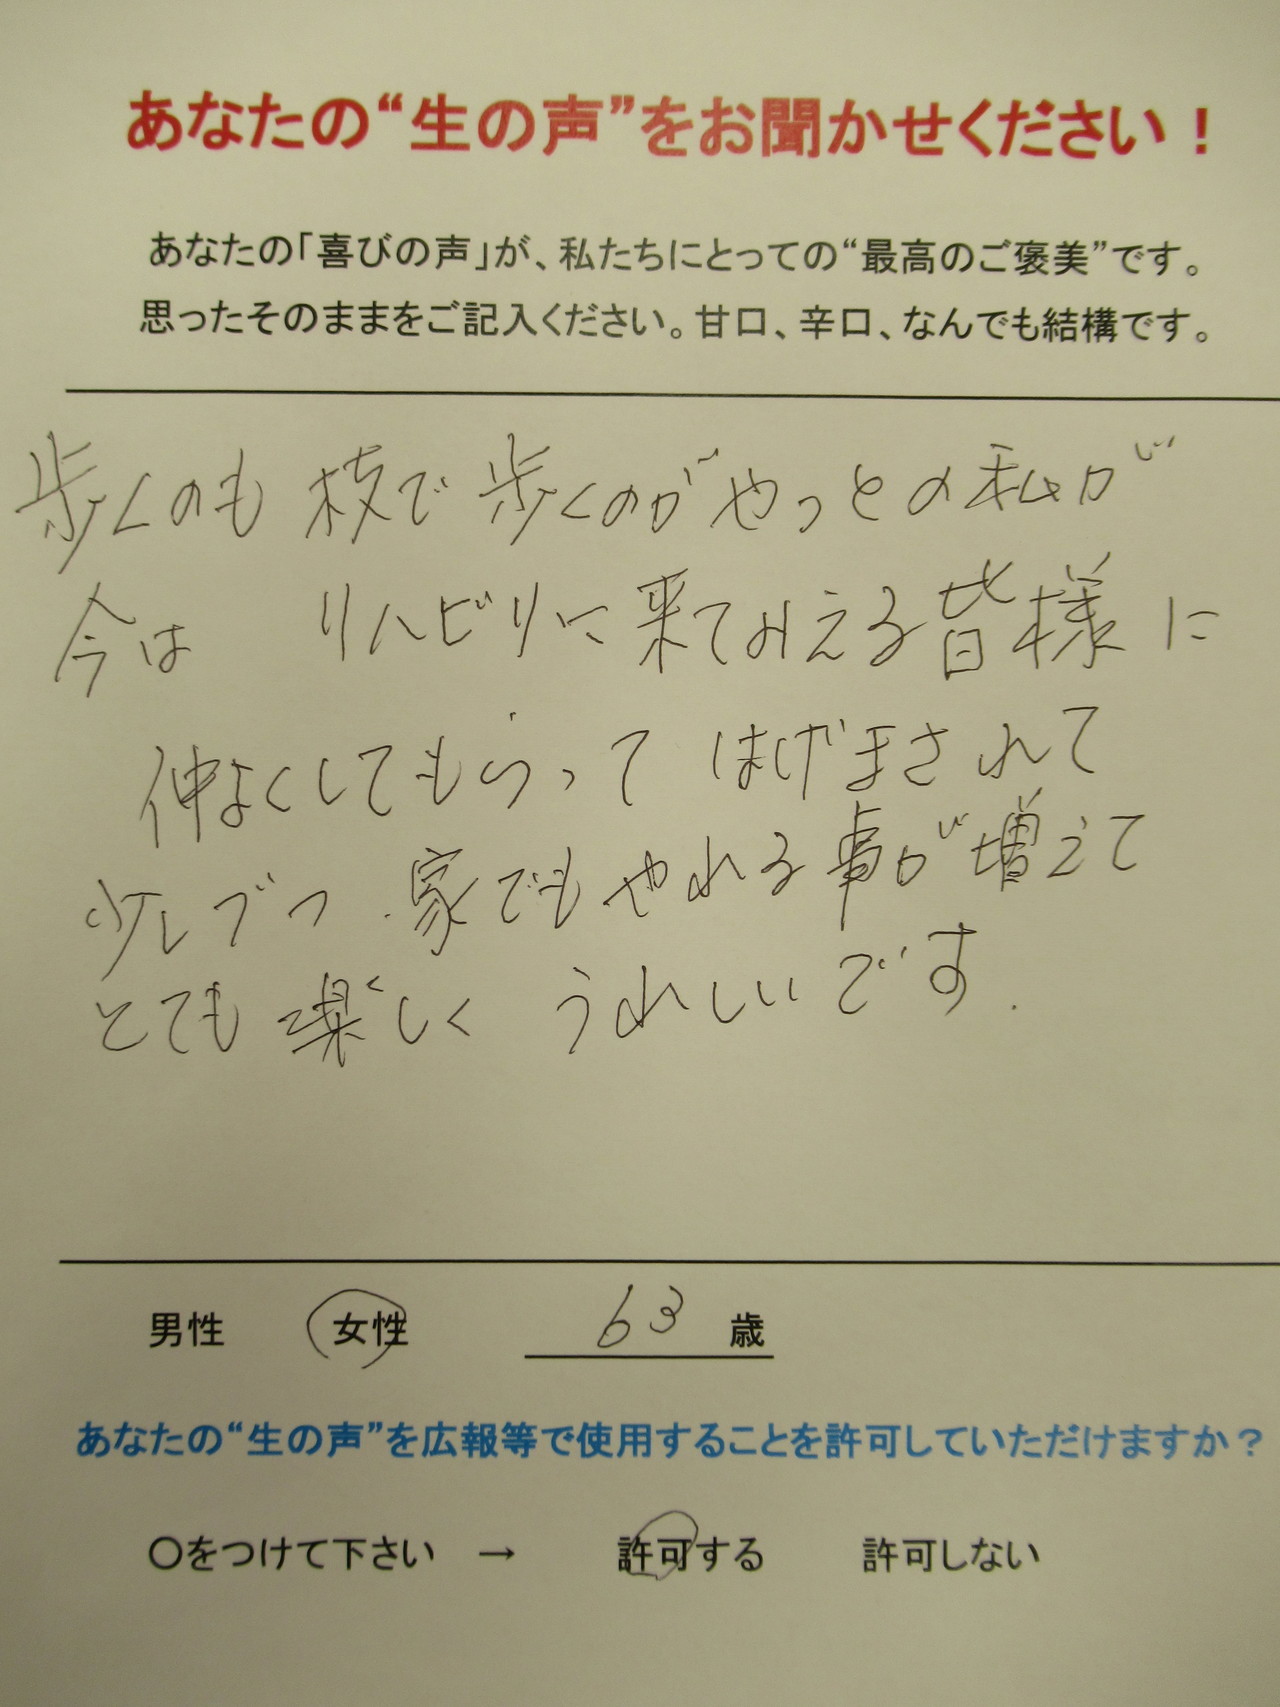 あなたの“生の声”をお聞かせください！
あなたの「喜びの声」が、私たちにとっての“最高のご褒美”です。
思ったそのままをご記入ください。甘口、辛口、なんでも結構です。
歩くのも 枝で 歩くのがやっとの私が
今は リハビリに来てみえる皆様に
仲よくしてもらって はげまされて
少しづつ．家でもやれる事が増えて
とても楽しく うれしいです．
男性 女性 63 歳
あなたの“生の声”を広報等で使用することを許可していただけますか？
〇をつけて下さい → 許可する 許可しない